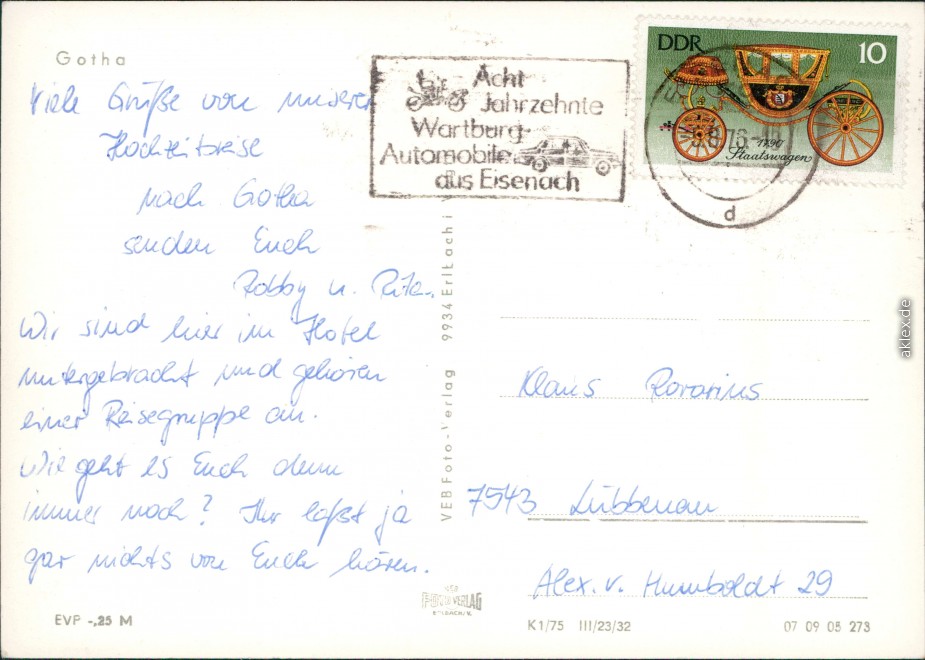 Gotha
Viele Grüße von unserer
Hochzeitsreise
nach Gotha
senden Euch
Robby u. Rita.
Wir sind hier im Hotel
untergebracht und gehören
einer Reisegruppe an.
Wie geht es Euch denn
immer noch? Ihr laßt ja
gar nichts von Euch hören.
EVP -,25 M
Acht
Jahrzehnte
Wartburg-
Automobile
aus Eisenach
DDR 10
1790
Staatswagen
76-
d
VEB Foto-Verlag 9934 Erlbach i
Klaus Rovarius
7543 Lübbenau
Alex. v. Humboldt 29
VEB
FOTO-VERLAG
ERLBACH/V.
K1/75 III/23/32 07 09 05 273
aklex.de